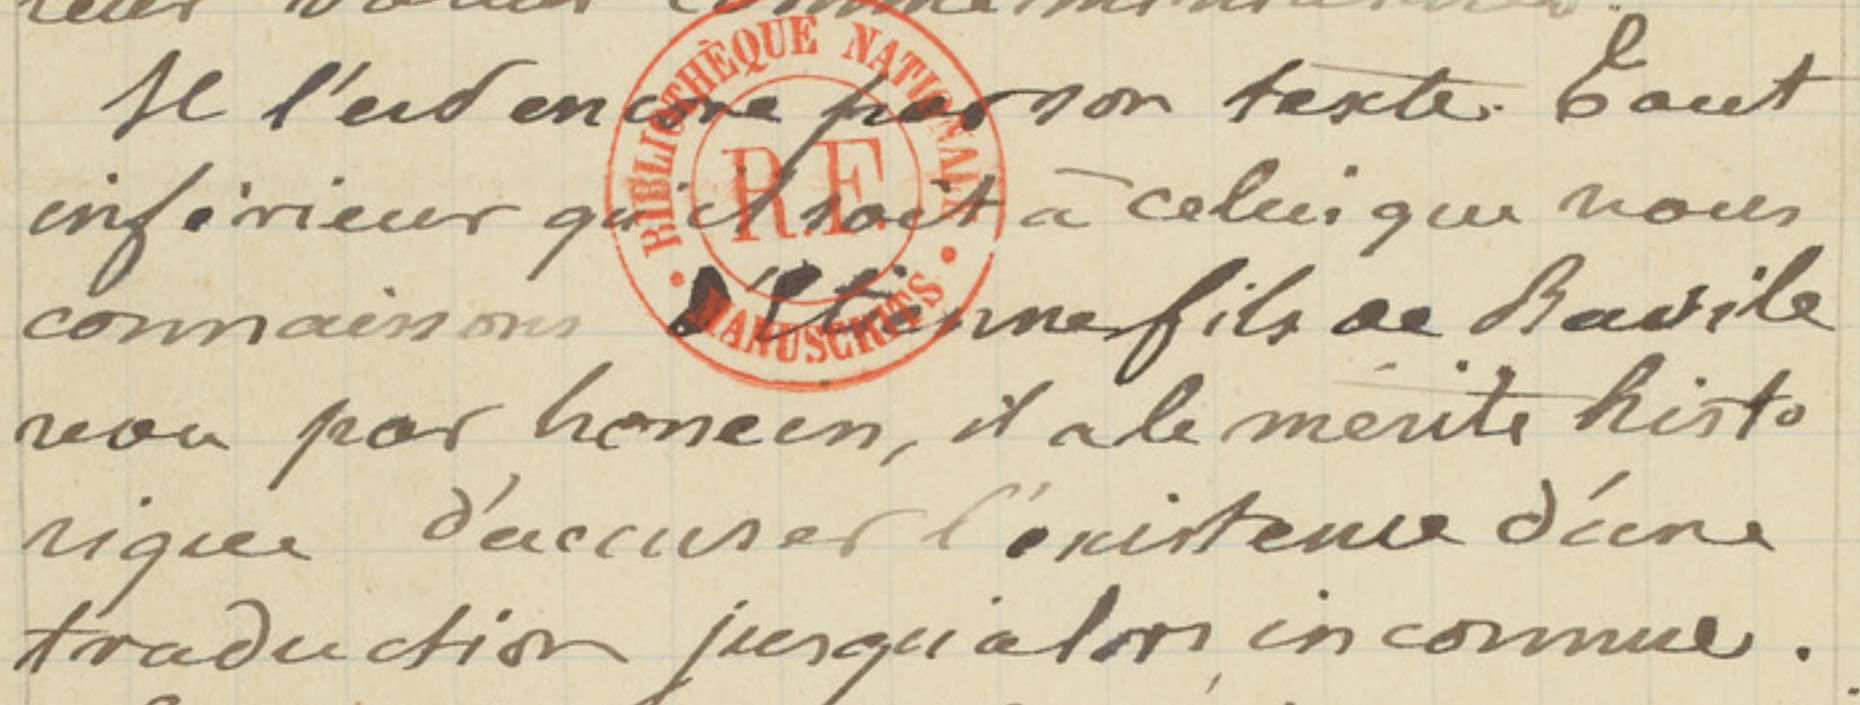 Il l'est encore par son texte. Tout
inférieur qu'il soit à celui que nous
connaissons d'Etienne fils de Basile
revu par honein, il a le mérite histo
rique d'accuser l'existence d'une
traduction jusqu'alors inconnue.
BIBLIOTHÈQUE NATIONALE
R.F.
MANUSCRITS